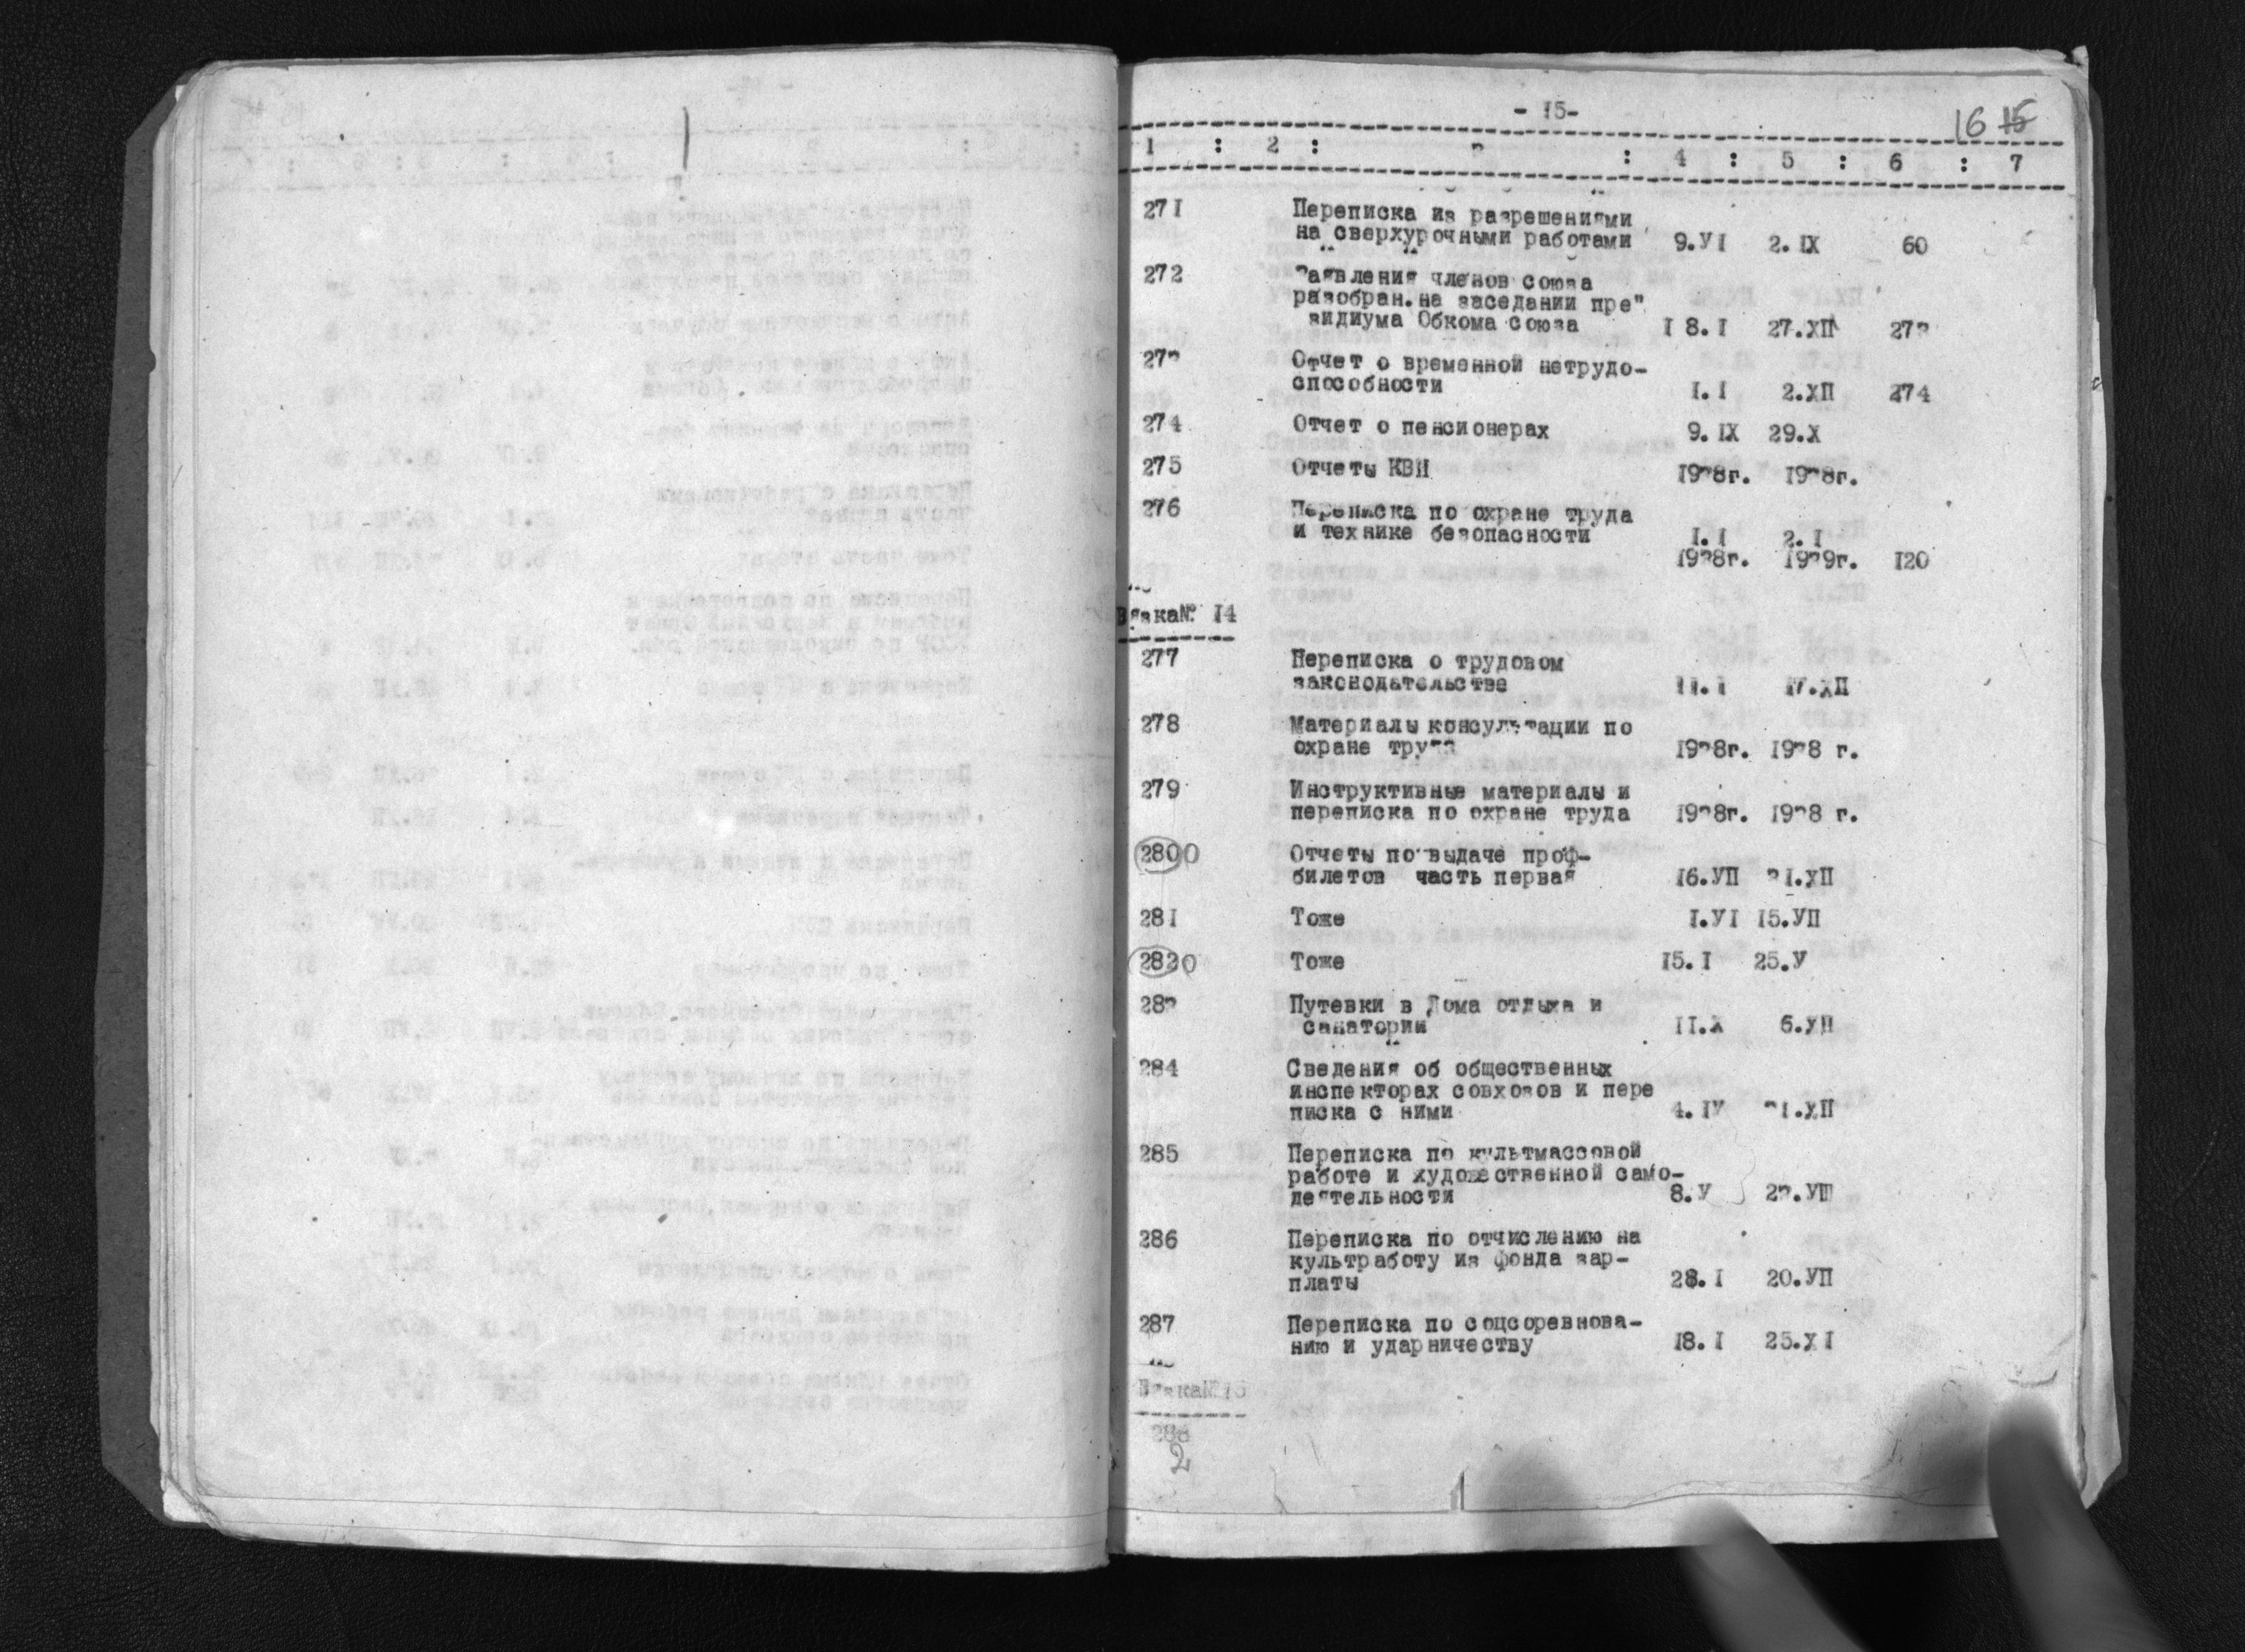 - 15-
16 15
1 : 2 : : 4 : 5 : 6 : 7
271 Переписка из разрешениями
на сверхурочными работами 9.УI 2.IX 60
272 Заявления членов союза
разобран.на заседании пре"
зидиума Обкома союза I8.I 27.XII 273
273 Отчет о временной нетрудо-
способности I.I 2.XII 274
274 Отчет о пенсионерах 9.IX 29.X
275 Отчеты КВП 1938г. 1938г.
276 Переписка по охране труда
и технике безопасности I.I 2.I
1938г. 1939г. I20
Вязка№ I4
277 Переписка о трудовом
законодательстве II.I I7.XII
278 Материалы консультации по
охране труда 1938г. 1938 г.
279 Инструктивные материалы и
переписка по охране труда 1938г. 1938 г.
2800 Отчеты по выдаче проф-
билетов часть первая I6.УII 31.XII
281 Тоже I.УI I5.УII
2820 Тоже I5.I 25.У
283 Путевки в Дома отдыха и
санатории II.X 6.XII
284 Сведения об общественных
инспекторах совхозов и пере
писка с ними 4.IУ 31.XII
285 Переписка по культмассовой
работе и художественной само-
деятельности 8.У 23.УIII
286 Переписка по отчислению на
культработу из фонда зар-
платы 28.I 20.УII
287 Переписка по соцсоревнова-
нию и ударничеству I8.I 25.XI
Вязка№I5
288
2